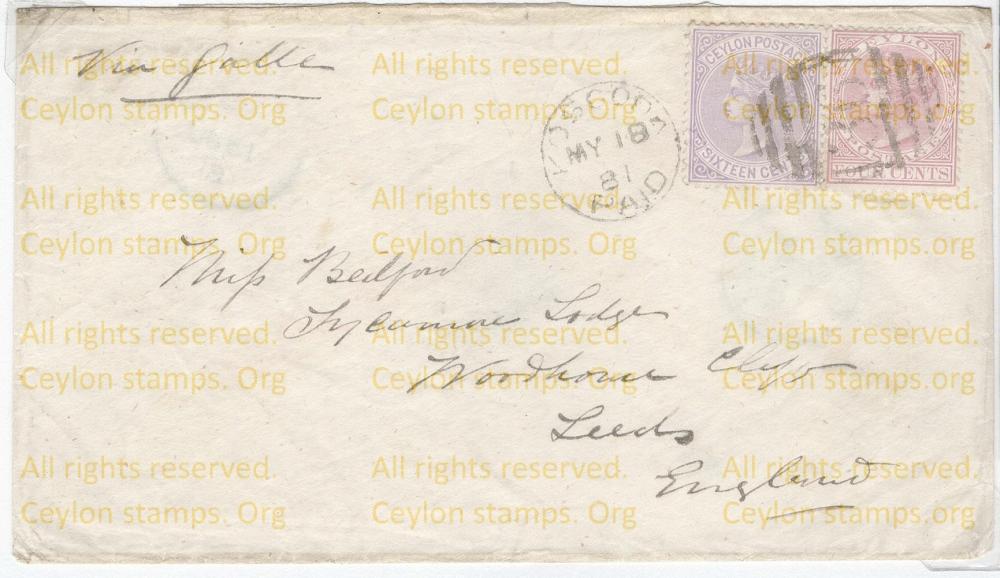 Via Galle
KOSGODA
MY 18
81
PAID
CEYLON POSTAGE
SIXTEEN CENTS
CEYLON
FOUR CENTS
Miss Bedford
Sycamore Lodge
Woodhouse Cliff
Leeds
England
All rights reserved. All rights reserved. All rights reserved.
Ceylon stamps. Org Ceylon stamps. Org Ceylon stamps. Org
All rights reserved. All rights reserved. All rights reserved.
Ceylon stamps. Org Ceylon stamps. Org Ceylon stamps. Org
All rights reserved. All rights reserved. All rights reserved.
Ceylon stamps. Org Ceylon stamps. Org Ceylon stamps. Org
All rights reserved. All rights reserved. All rights reserved.
Ceylon stamps. Org Ceylon stamps. Org Ceylon stamps. Org